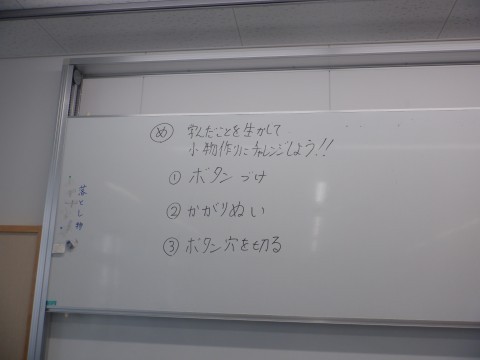 め 学んだことを生かして
小物作りにチャレンジしよう!!
① ボタンづけ
② かがりぬい
③ ボタン穴を切る
落とし物